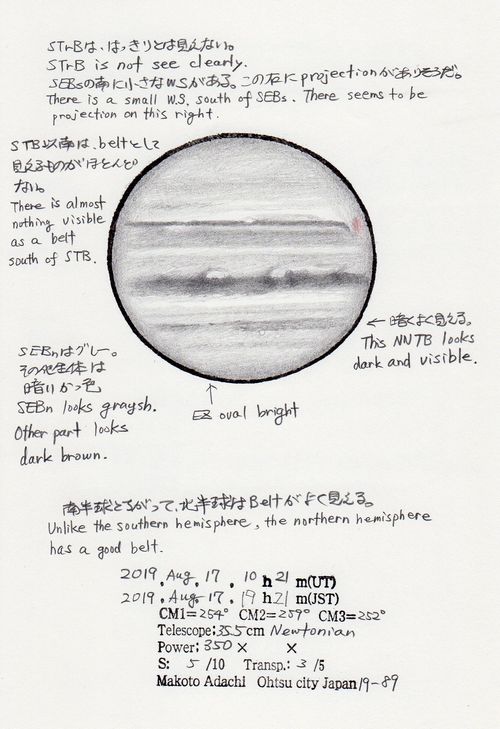 STrBは、はっきりとは見えない。
STrB is not see clearly.
SEBsの南に小さなW.S.がある。この右にprojectionがありそうだ。
There is a small W.S. south of SEBs. There seems to be
projection on this right.
STB以南は、beltとして
見えるものがほとんど
ない。
There is almost
nothing visible
as a belt
south of STB.
← 暗くよく見える。
This NNTB looks
dark and visible.
SEBnはグレー。
その他全体は
暗いかっ色
SEBn looks graysh.
Other part looks
dark brown.
↑
EZ oval bright
南半球とちがって、北半球はBeltがよく見える。
Unlike the southern hemisphere, the northern hemisphere
has a good belt.
2019. Aug. 17. 10 h 21 m(UT)
2019. Aug. 17. 19 h 21 m(JST)
CM1= 254° CM2= 259° CM3= 252°
Telescope: 35.5 cm Newtonian
Power: 350 × ×
S: 5 /10 Transp.: 3 /5
Makoto Adachi Ohtsu city Japan 19-89